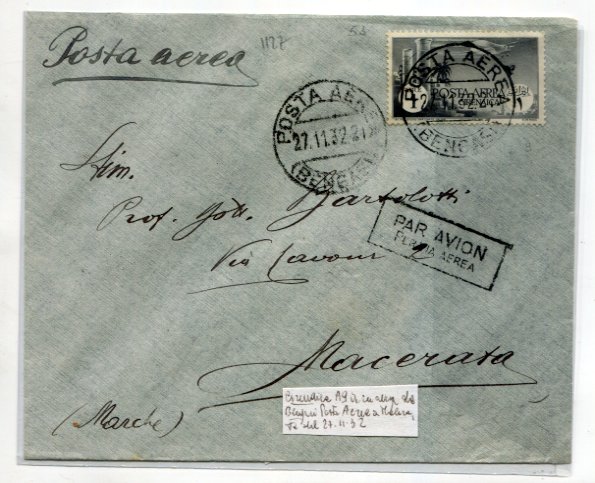 Posta aerea
1127
53
POSTA AEREA
CIRENAICA
POSTA AEREA
27.11.32.21
(BENGASI)
POSTA AEREA
(BENGASI)
Prof. Dott. Bartolotti
Via Cavour 2
PAR AVION
PER VIA AEREA
Macerata
(Marche)
Cirenaica A9
Posta Aerea a Macera
ta del 27.11.32